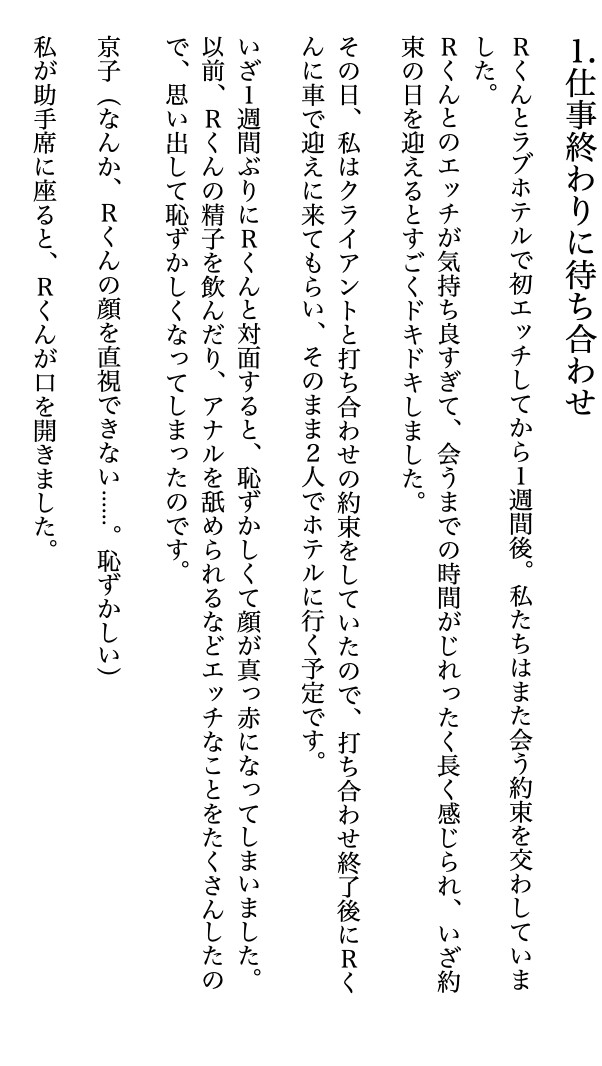 1.仕事終わりに待ち合わせ
Rくんとラブホテルで初エッチしてから1週間後。私たちはまた会う約束を交わしていま
した。
Rくんとのエッチが気持ち良すぎて、会うまでの時間がじれったく長く感じられ、いざ約
束の日を迎えるとすごくドキドキしました。
その日、私はクライアントと打ち合わせの約束をしていたので、打ち合わせ終了後にRく
んに車で迎えに来てもらい、そのまま2人でホテルに行く予定です。
いざ1週間ぶりにRくんと対面すると、恥ずかしくて顔が真っ赤になってしまいました。
以前、Rくんの精子を飲んだり、アナルを舐められるなどエッチなことをたくさんしたの
で、思い出して恥ずかしくなってしまったのです。
京子（なんか、Rくんの顔を直視できない……。恥ずかしい）
私が助手席に座ると、Rくんが口を開きました。